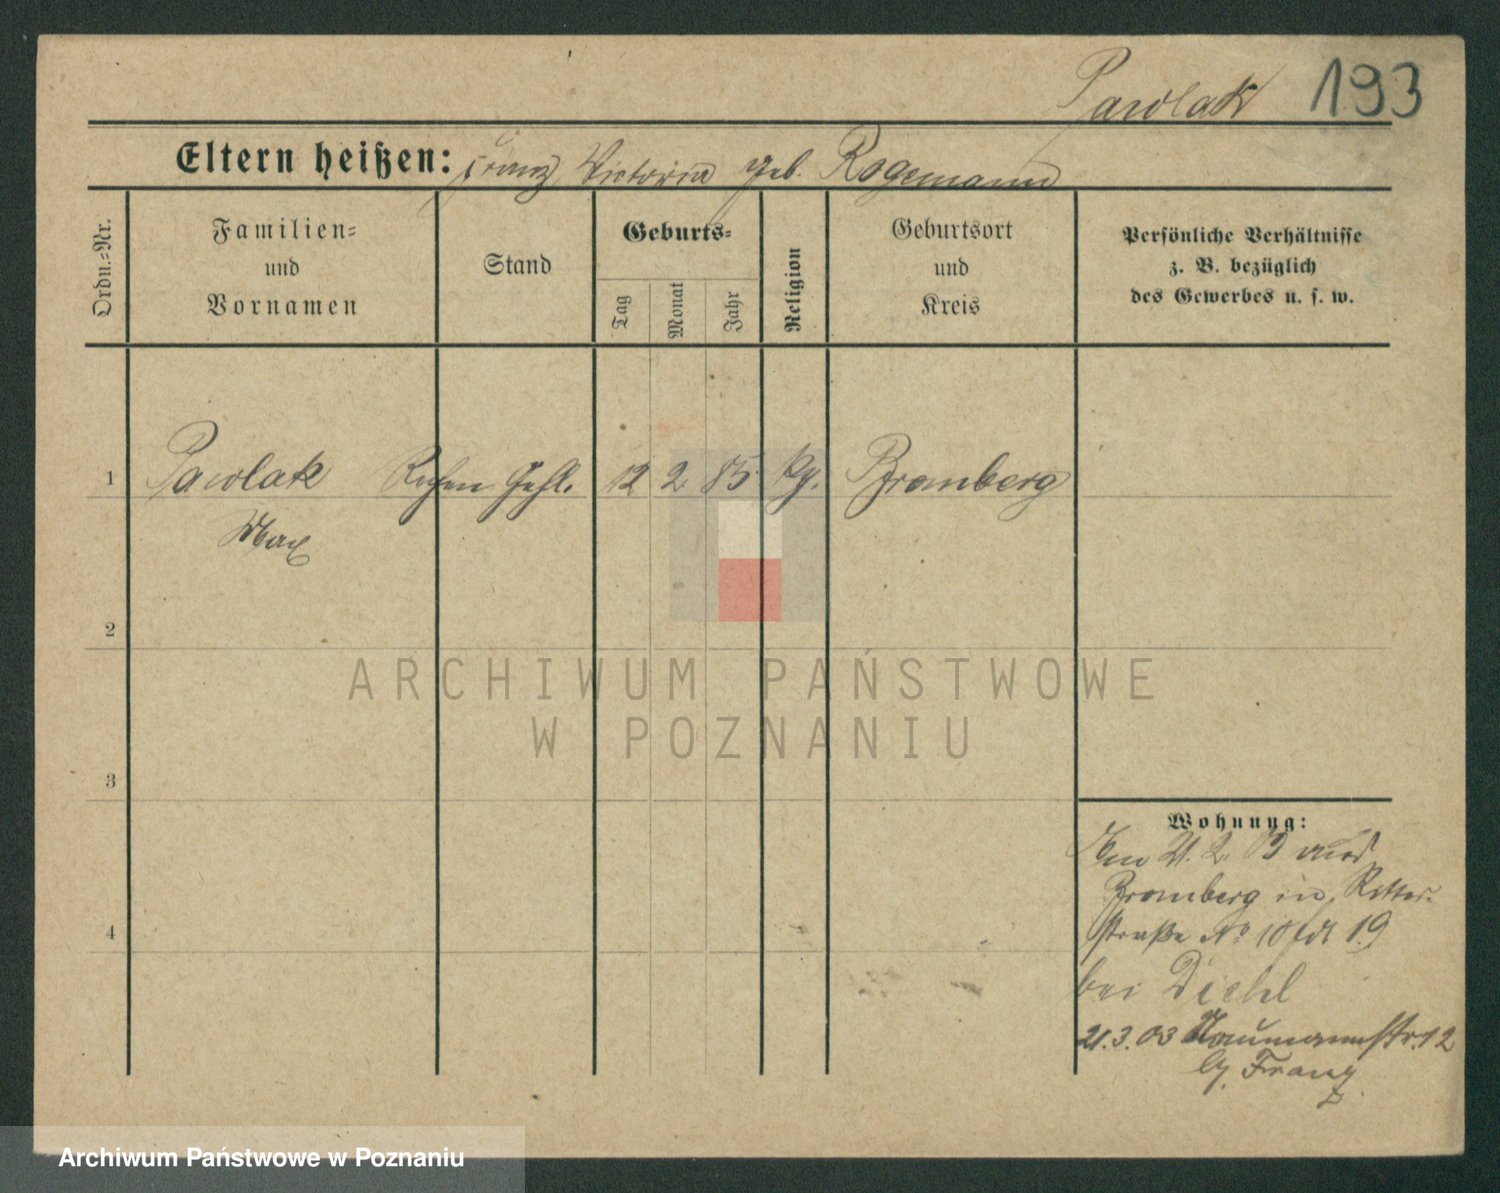 Pawlak 193
Eltern heißen: Franz, Victoria geb. Rogemann
Ordn.-Nr.
Familien-
und
Vornamen
Stand
Geburts-
Tag
Monat
Jahr
Religion
Geburtsort
und
Kreis
Persönliche Verhältnisse
z. B. bezüglich
des Gewerbes u. s. w.
1 Pawlak 12 2 85 Bromberg
Max
2
3
4
Wohnung:
21. 2. 03 aus
Bromberg in Ritter-
straße No 10 19
bei Diehl
21.3.03 Naumannstr. 12
b/ Franz
ARCHIWUM PAŃSTWOWE
W POZNANIU
Archiwum Państwowe w Poznaniu